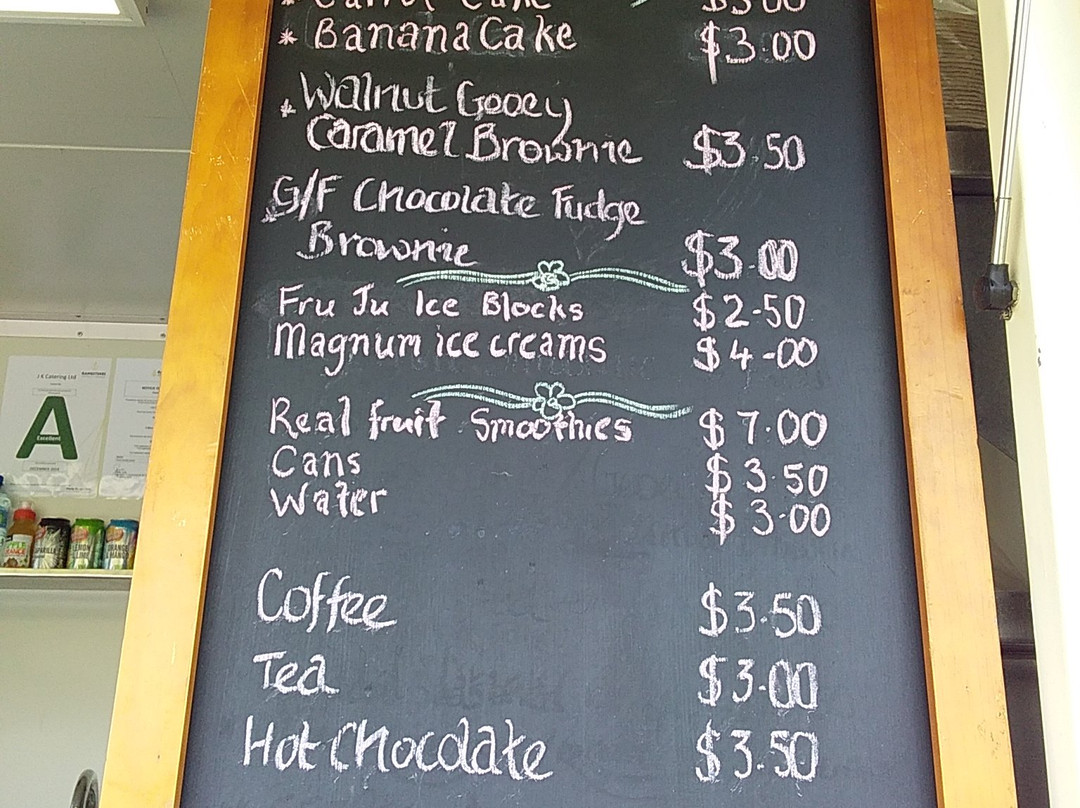 * Carrot Cake $3.00
* Banana Cake $3.00
* Walnut Gooey
Caramel Brownie $3.50
* G/F Chocolate Fudge
Brownie $3.00
Fru Ju Ice Blocks $2-50
Magnum ice creams $4-00
Real fruit Smoothies $7.00
Cans $3.50
Water $3.00
Coffee $3.50
Tea $3.00
Hot Chocolate $3.50
J K Catering Ltd
A
Excellent